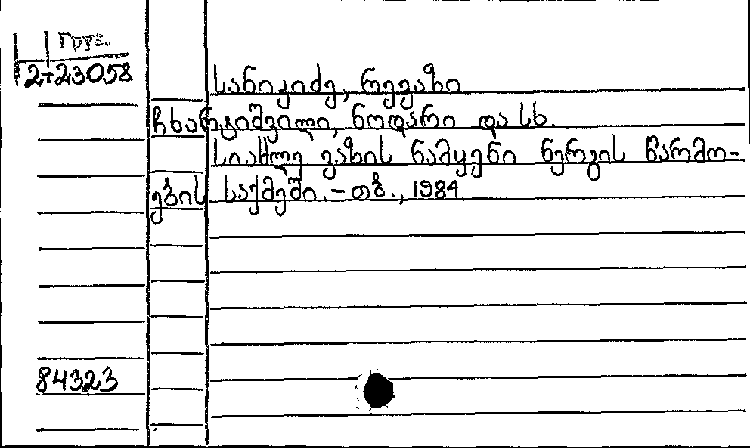 Груз.
12+23058
სანიკიძე, რევაზი
ჩხარტიშვილი, ნოდარი და სხ.
სიახლე ვაზის ნამყენი ნერგის წარმო-
ების საქმეში. – თბ., 1984
84323